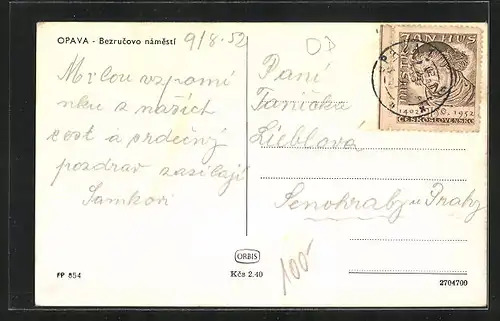 OPAVA - Bezručovo náměstí
9/8.52
OD
Milou vzpomí
nku z našich
cest a srdečný
pozdrav zasílají
Samkovi
Paní
Fanička
Lieblová
Senohraby u Prahy
JAN HUS
1402 1952
ČESKOSLOVENSKO
ORBIS
Kčs 2.40
100-
FP 854
2704700